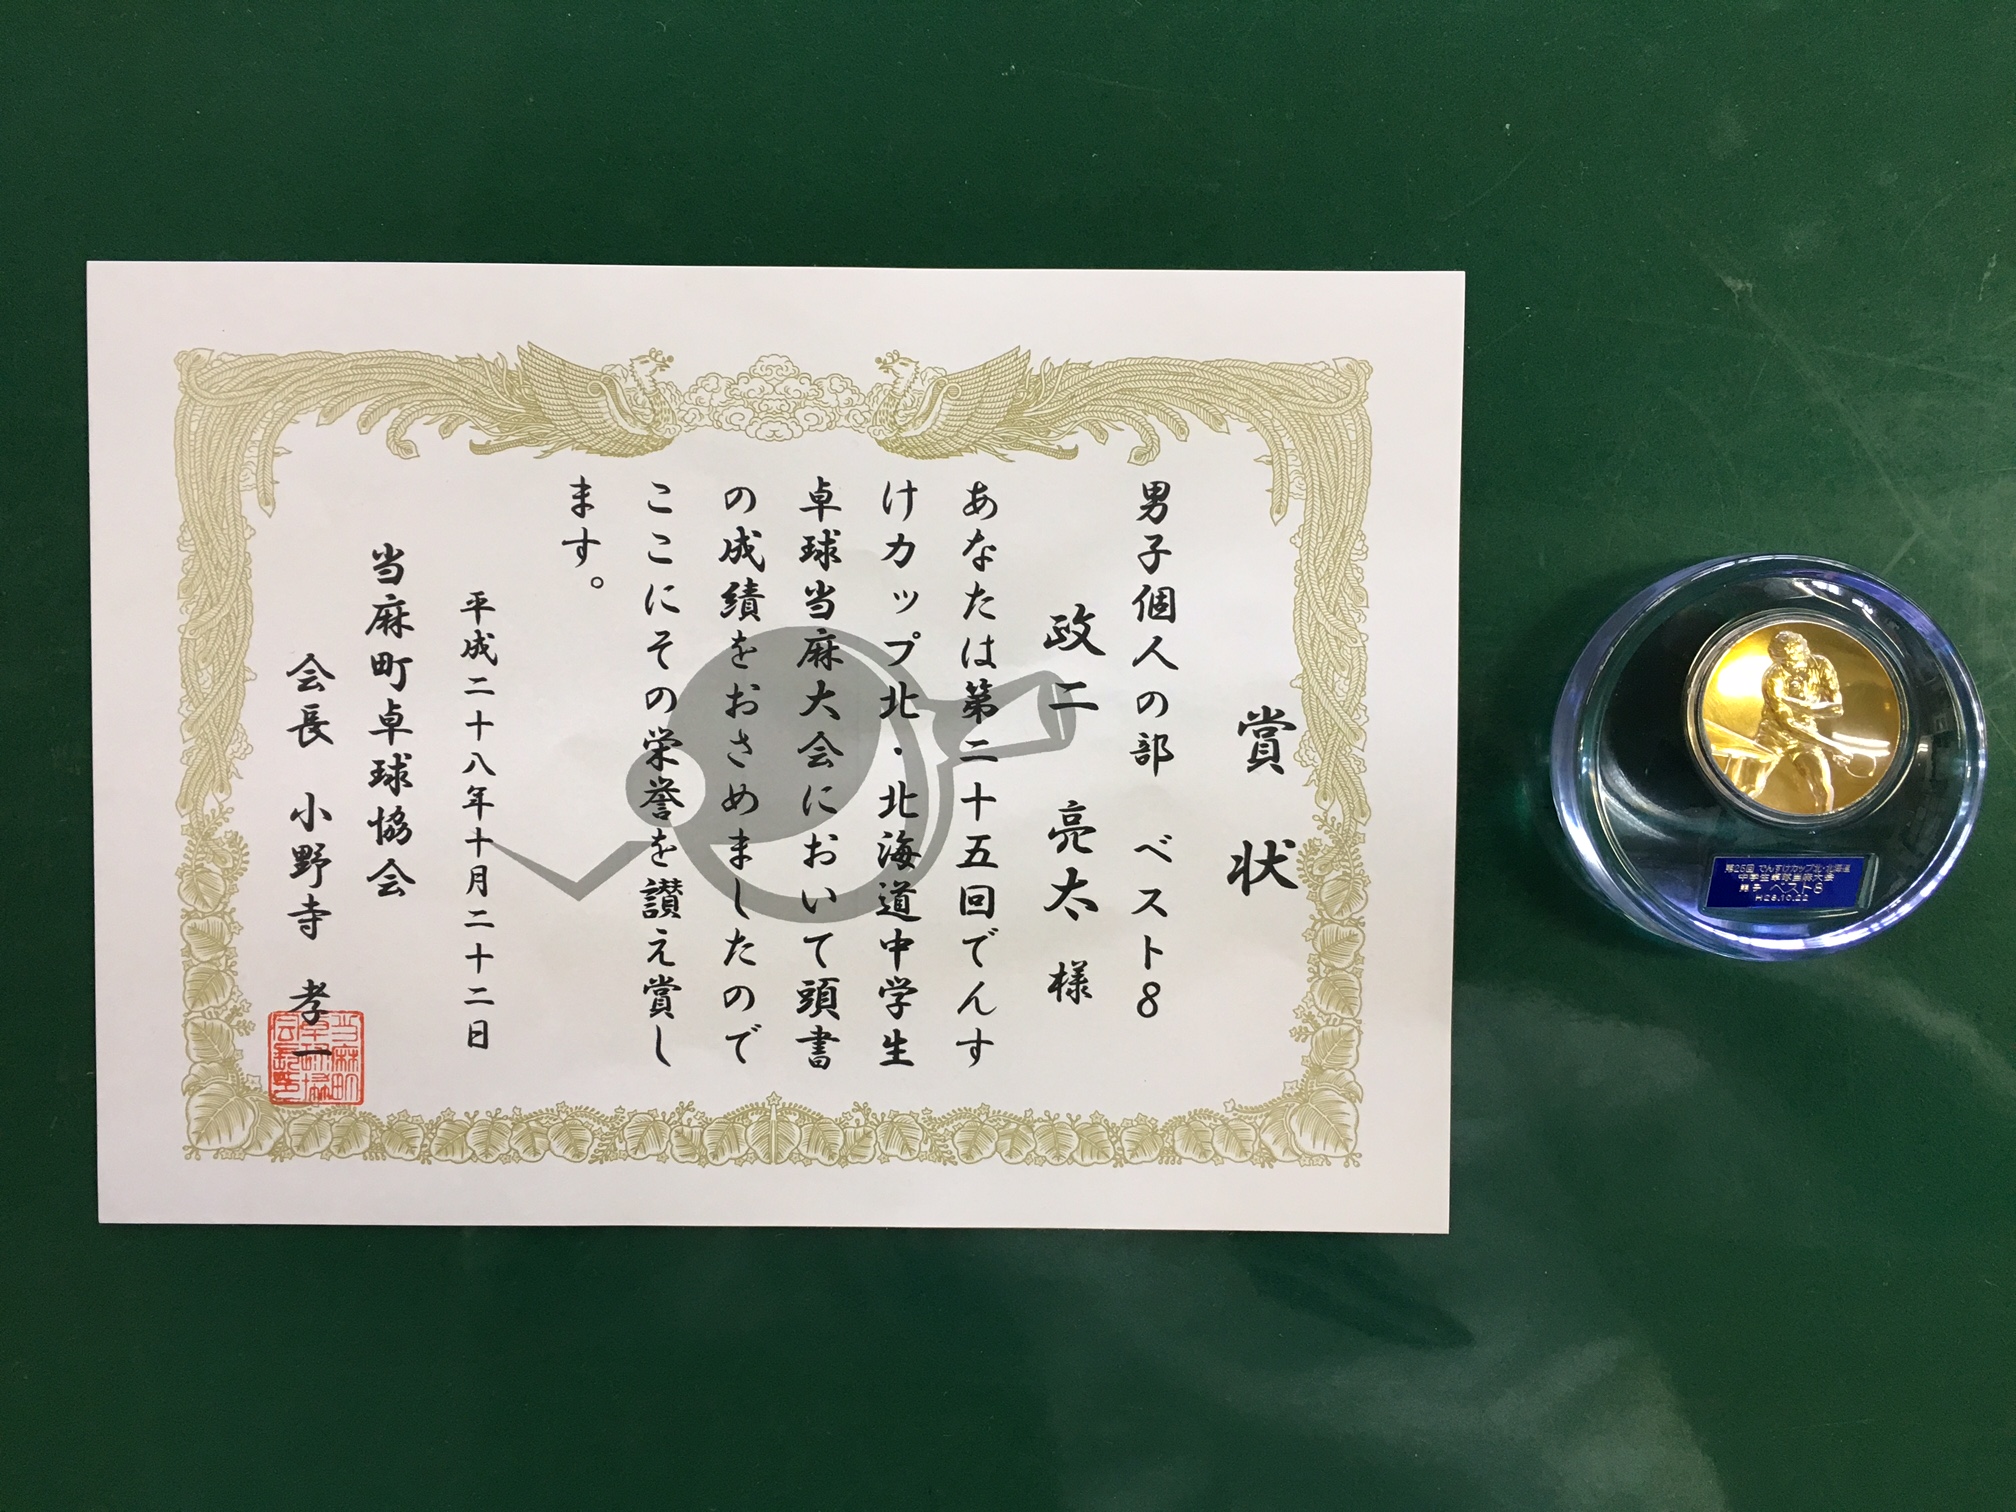 賞状
男子個人の部　ベスト８
政二　亮太　様
あなたは第二十五回でんす
けカップ北・北海道中学生
卓球当麻大会において頭書
の成績をおさめましたので
ここにその栄誉を讃え賞し
ます。
平成二十八年十月二十二日
当麻町卓球協会
会長　小野寺　孝一
当麻町
卓球協
会長之印
第25回 でんすけカップ北・北海道
中学生卓球当麻大会
男子 ベスト8
H28.10.22